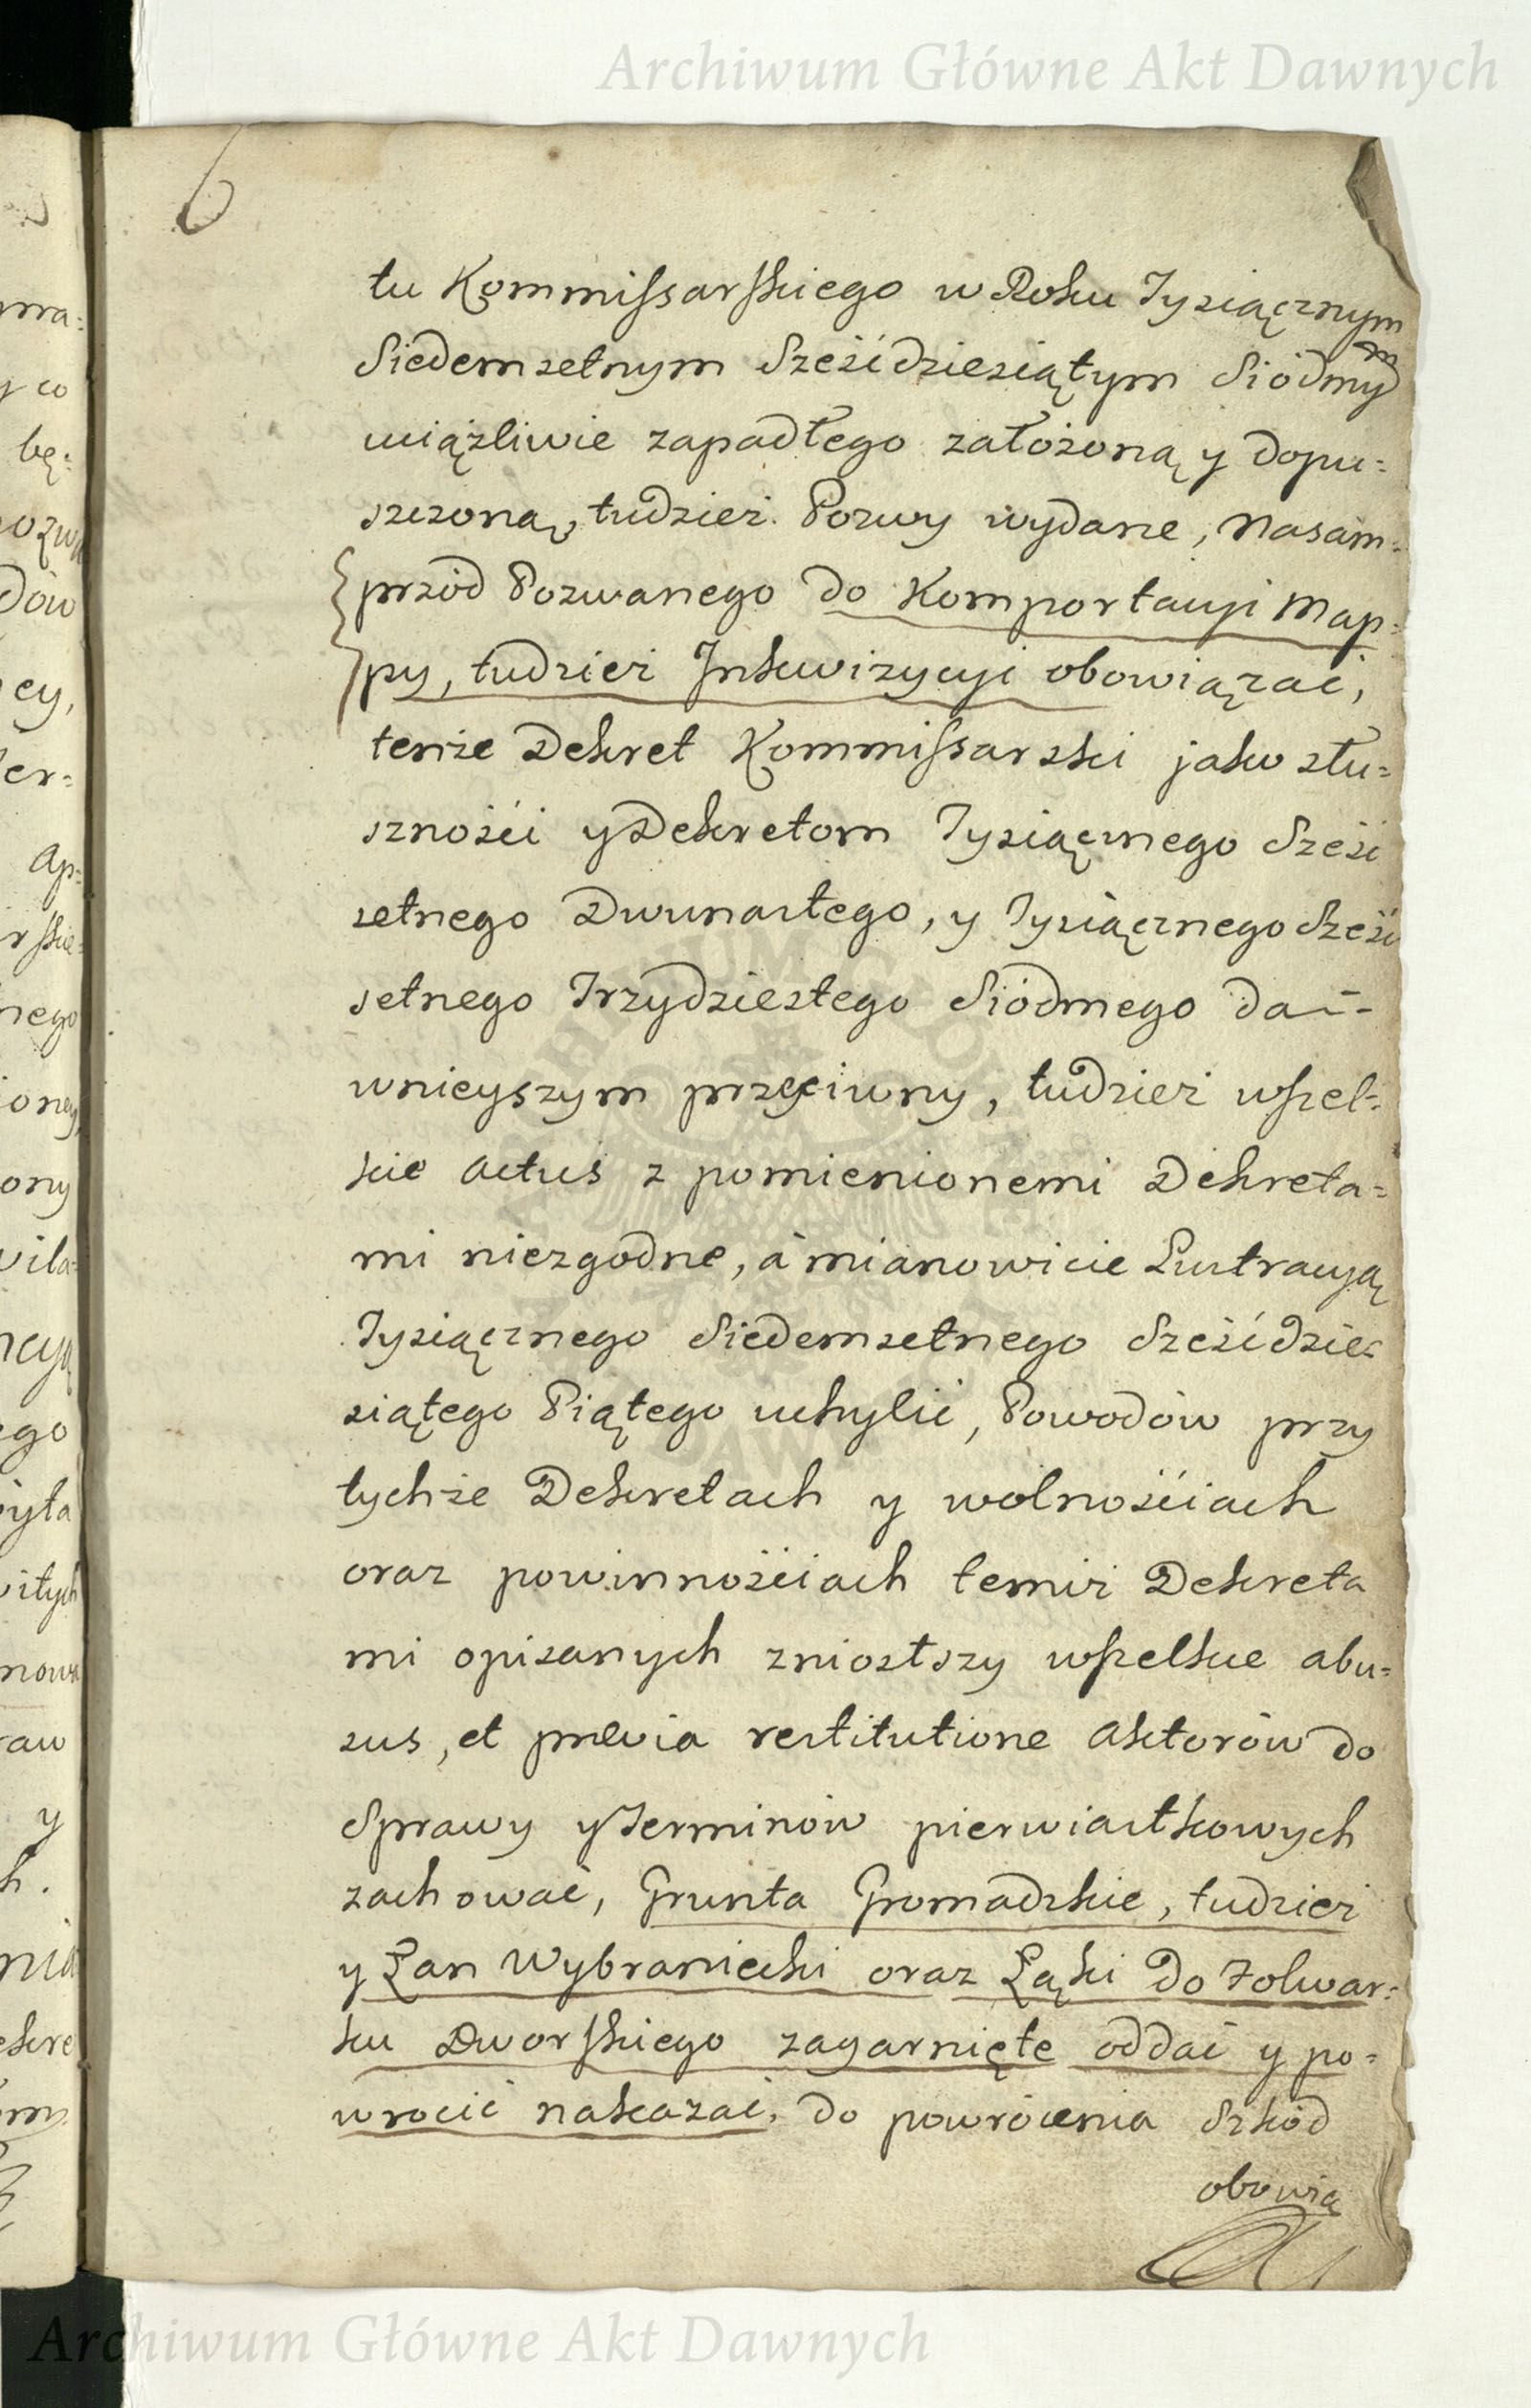 Archiwum Główne Akt Dawnych
6
tu Kommissarskiego w Roku Tysiącznym
Siedemsetnym Sześćdziesiątym Siódmym
uciążliwie zapadłego założoną y dopu=
szczoną, tudzież Pozwy wydane, Nasam=
przód Pozwanego do Komportacyi Map=
py, tudzież Inkwizycyi obowiązać,
tenże Dekret Kommissarski jako słu=
sznośći y Dekretom Tysiącznego Sześć
setnego Dwunastego, y Tysiącznego Sześć
setnego Trzydziestego Siódmego da=
wnieyszym przeciwny, tudzież wszel=
kie actus z pomienionemi Dekreta=
mi niezgodne, à mianowicie Lustracyą
Tysiącznego Siedemsetnego Sześćdzie=
siątego Piątego uchylić, Powodów przy
tychże Dekretach y wolnośćiach
oraz powinnośćiach temiż Dekreta
mi opisanych zniosłszy wszelkie abu=
sus, et prævia restitutione Aktorów do
Sprawy y Terminów pierwiastkowych
zachować, Grunta Gromadzkie, tudzież
y Łan Wybraniecki oraz Łąki do Folwar=
ku Dworskiego zagarnięte oddać y po=
wrocić nakazać, do powrócenia Szkód
obowią
Archiwum Główne Akt Dawnych